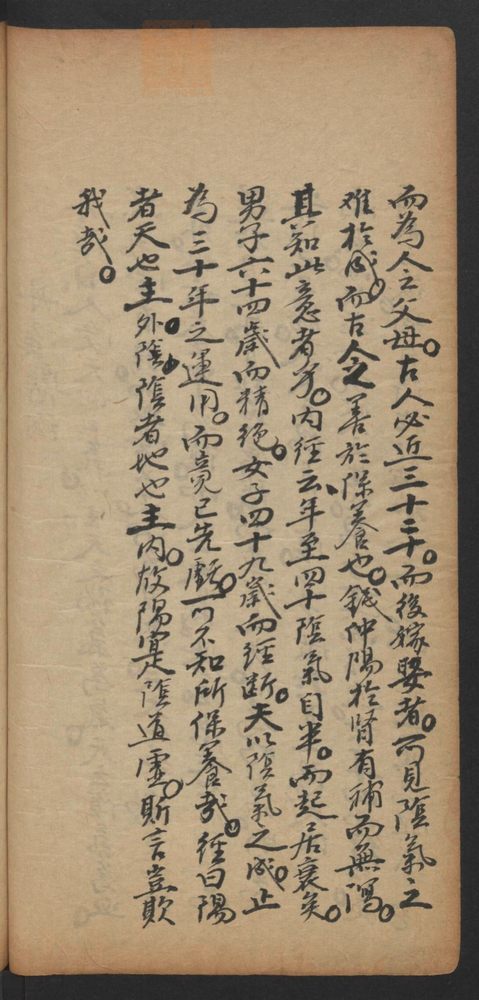 而為人之父母。古人必近三十二十。而後嫁娶者。可見陰氣之
难於成。而古人之善於保養也。錢仲陽於腎有補而無瀉。
其知此意者乎。內經云、年至四十陰氣自半。而起居衰矣。
男子六十四歲而精絕。女子四十九歲而經断。夫以陰氣之成。止
為三十年之運用。而竟已先虧。可不知所保養哉。經曰陽
者天也主外。陰者地也主内。故陽寔陰道虛。斯言豈欺
我哉。